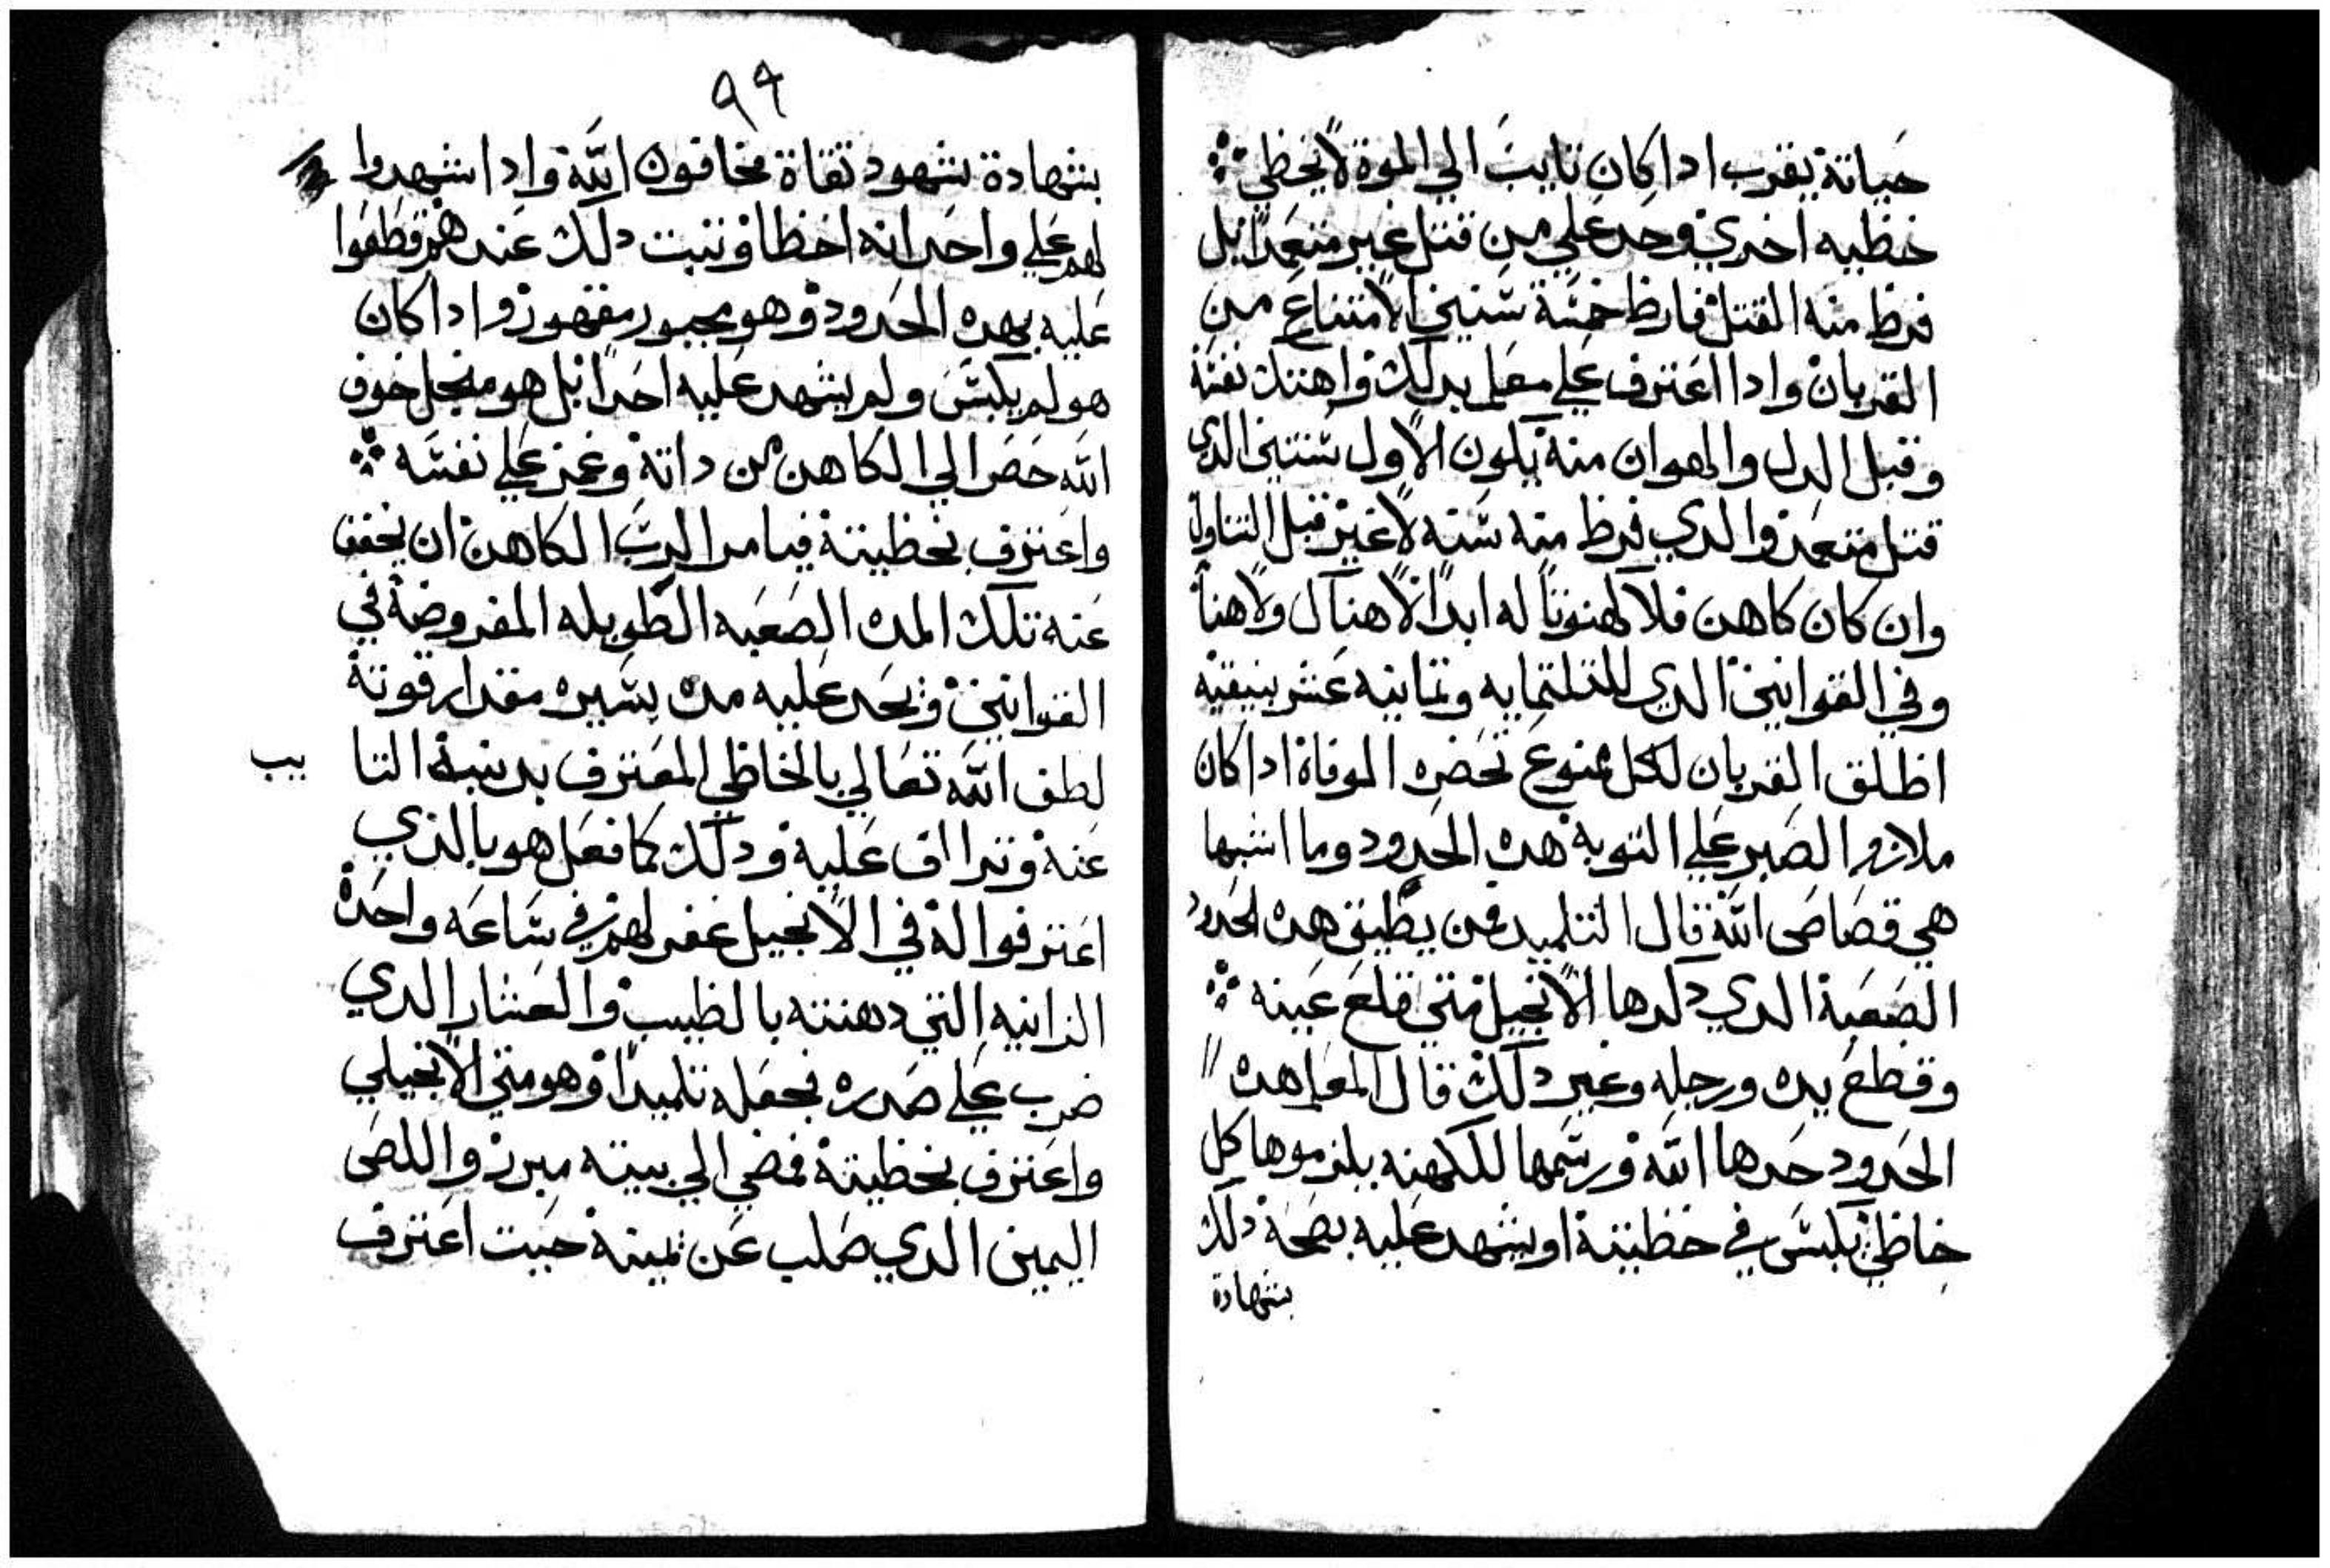 حياته يقرب ادا كان تايب الي الموة لا يخظي
خظيه اخري وحد علي من قتل غير متعمدا بل
فرظ منه القتل فارظ خمسة سنين الامتناع من
القربان وادا اعترف علي معلم بدلك واهتك نفسه
وقبل الدل والهوان منه يكون الاول سنتين الدي
قتل متعمد والدي فرظ منه سنه لا غير قبل التناول
وان كان كاهن فلا كهنوتا له ابدا لا هناك ولا هنا
وفي القوانين الدي للتلتمايه وتمانيه عشر بنيقيه
اظلق القربان لكل ممنوع تحضره الموفاة ادا كان
ملازم الصبر علي التوبه هده الحدود وما اشبها
هي قصاص الله قال التلميد فمن يطيق هده الحدود
الصعبة الدي دكرها الانجيل متي قلع عينه
وقطع يده ورجله وغير دلك قال المعلم هده
الحدود حدها الله ورسمها للكهنه يلزموها كل
خاظي يكبس في خظيته او يشهد عليه بصحة دلك
بشهادة
٩٩
بشهادة شهود تقاة مخافون الله وادا شهدوا
لهم علي واحد انه اخظا وتبت دلك عندهم قطعوا
عليه بهده الحدود وهو مجبور مقهور وادا كان
هو لم يكبس ولم يشهد عليه احدا بل هو منجل خوف
الله حضر الي الكاهن من داته وغمز علي نفسه
واعترف بخظيته فيامر الرب الكاهن ان يخفف
عنه تلك المده الصعبه الطويله المفروضة في
القوانين ويحد عليه مده يسيره مقدار قوته
لطف الله تعالي بالخاظي المعترف بدينه التا يب
عنه وتراا ف عليه ودلك كما فعل هو بالذي
اعترفوا له في الانجيل غفر لهم في ساعه واحدة
الزانيه التي دهنته بالطيب والعشار الدي
ضرب علي صدره فجعله تلميدا وهو متي الانجيلي
واعترف بخظيته فمضي الي بيته مبرر واللص
اليمين الدي صلب عن يمينه حيت اعترف